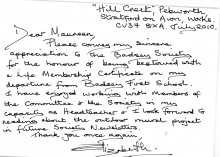 "Hill Creek", Pebworth
Stratford on Avon, Warks.
CV37 8XA. July 2010.
Dear Maureen,
Please convey my sincere
appreciation to the Badsey Society
for the honour of being bestowed with
a Life Membership Certificate on my
departure from Badsey First School.
I have enjoyed working with Members of
the Committee & the Society in my
capacity as Headteacher & I look forward to
reading about the outdoor mural project
in future Society Newsletters.
Thank you once again,